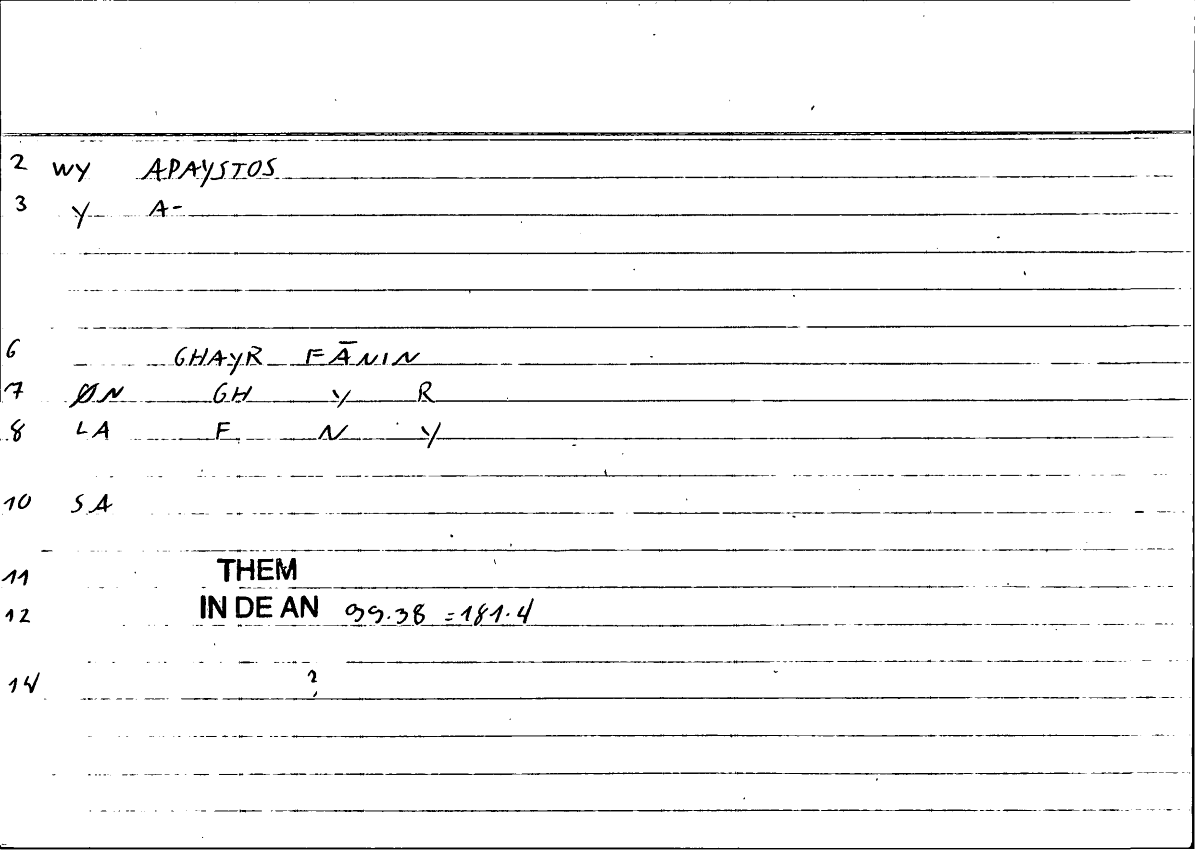 2 WY APAYSTOS
3 Y A-
6 GHAYR FĀNIN
7 ØN GH Y R
8 LA F N Y
10 SA
11 THEM
12 IN DE AN 99.38 = 181.4
14 ?